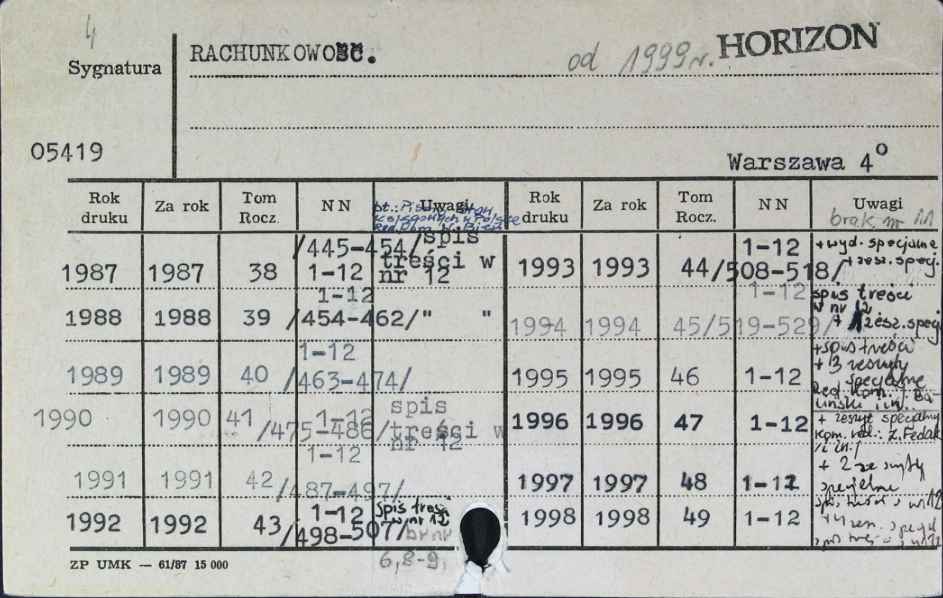 4
Sygnatura
RACHUNKOWOŚĆ.
od 1999 r.
HORIZON
05419
Warszawa 4°
Rok druku Za rok Tom Rocz. N N Uwagi Rok druku Za rok Tom Rocz. N N Uwagi
brak nr 11
1987 1987 38 /445-454/ 1-12 spis treści w nr 12
1993 1993 44 /508-518/ 1-12 + wyd. specjalne + zesz. specj.
1988 1988 39 /454-462/ 1-12 " "
1994 1994 45 /519-529/ 1-12 spis treści w nr 12 + zesz. specj
1989 1989 40 /463-474/ 1-12
1995 1995 46 1-12 + spis treści + 3 zeszyty specjalne
1990 1990 41 /475-486/ 1-12 spis treści w nr 12
1996 1996 47 1-12 + zeszyt specjalny kom. red.: Z. Fedak /i in./
1991 1991 42 /487-497/ 1-12
1997 1997 48 1-12 + 2 zeszyty specjalne
1992 1992 43 /498-507/ 1-12 spis treści w nr 12 br nr 6, 8-9,
1998 1998 49 1-12
ZP UMK — 61/87 15 000